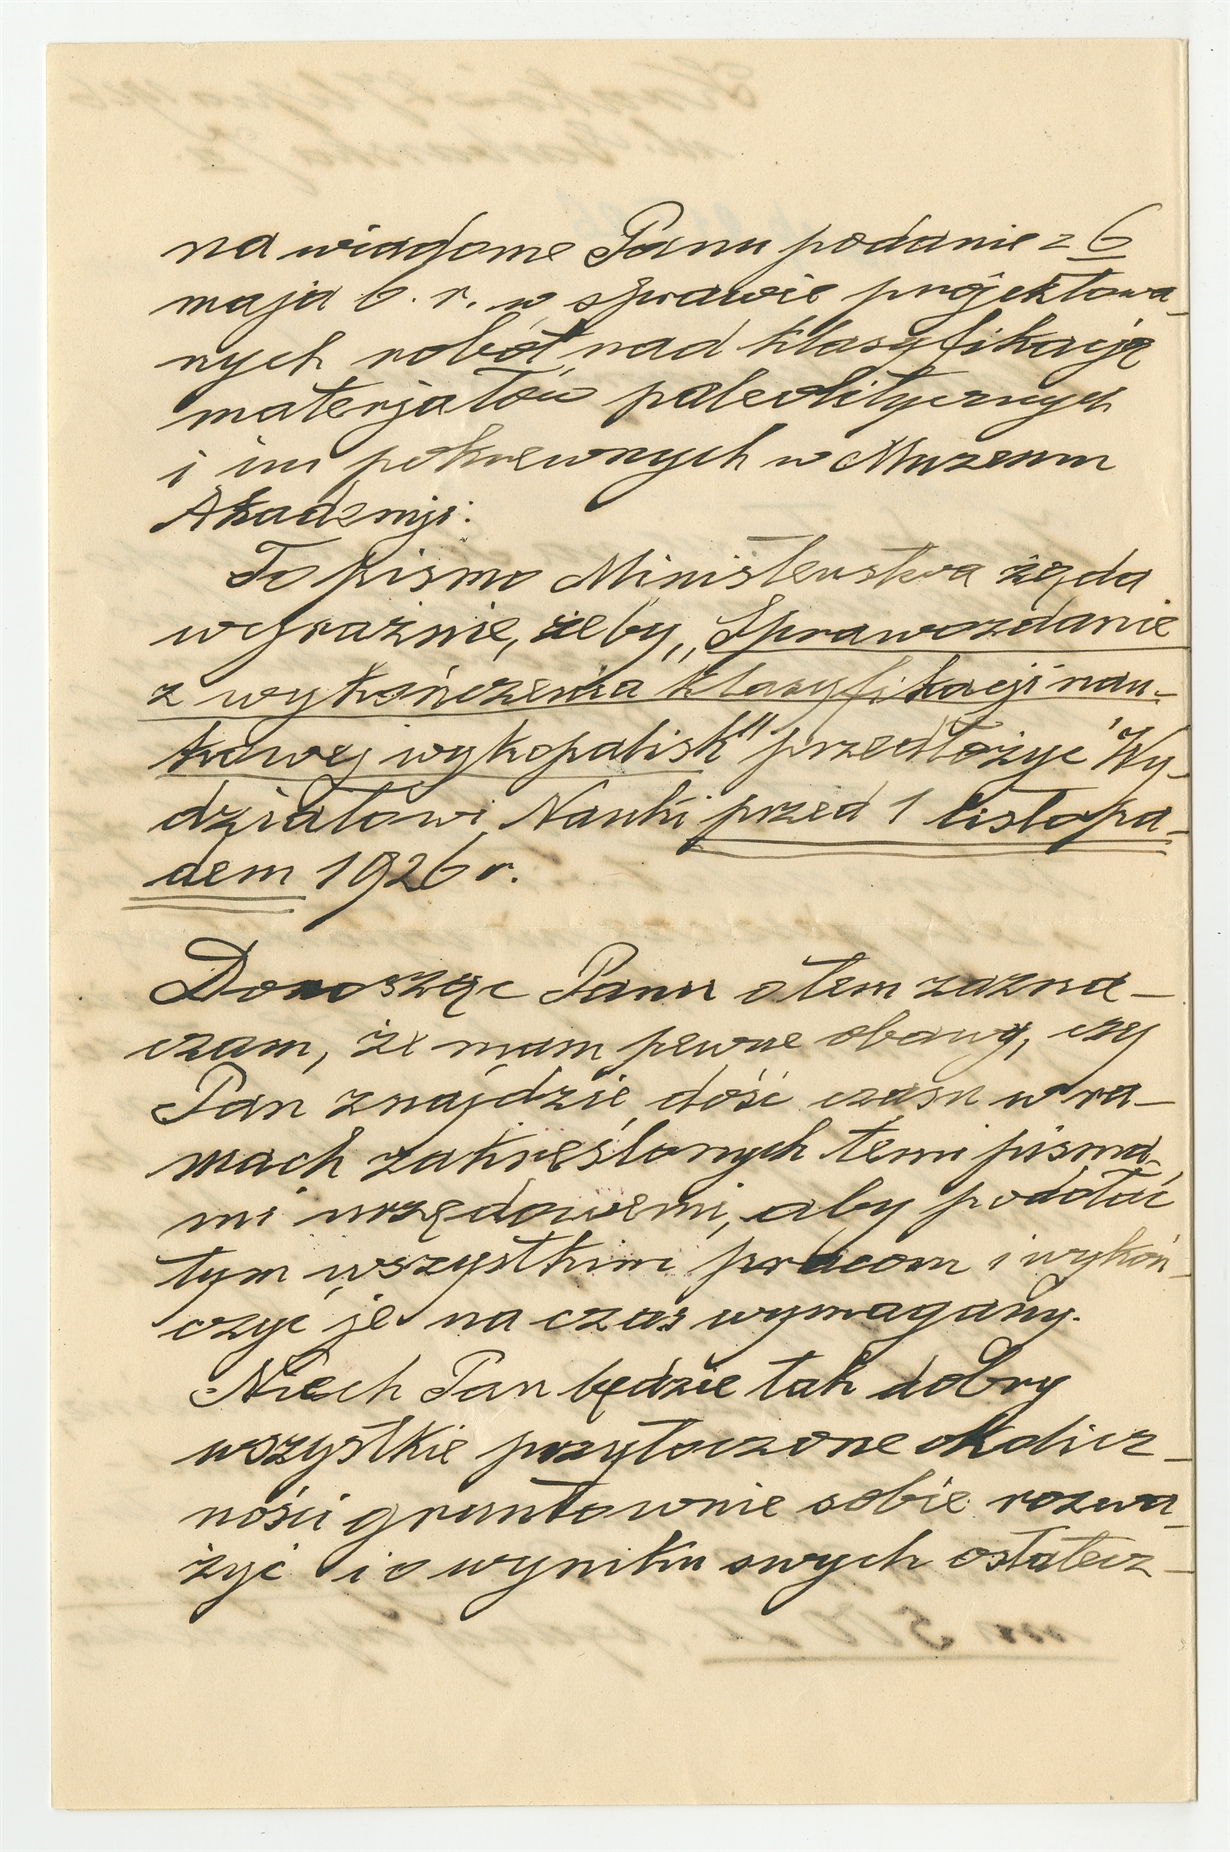 na wiadome Panu podanie z 6
maja b. r. w sprawie projektowa-
nych robót nad klasyfikacją
materjałów paleolitycznych
i im pokrewnych w Muzeum
Akademji.
To pismo Ministerstwa żąda
wyraźnie, żeby „Sprawozdanie
z wykończenia klasyfikacji nau-
kowej wykopalisk" przedłożyć Wy-
działowi Nauki przed 1 listopa-
dem 1926 r.
Donosząc Panu o tem zazna-
czam, że mam pewne obawy, czy
Pan znajdzie dość czasu w ra-
mach zakreślonych temi pisma-
mi urzędowemi, aby podołać
tym wszystkim pracom i wykoń-
czyć je na czas wymagany.
Niech Pan będzie tak dobry
wszystkie przytoczone okolicz-
ności gruntownie sobie rozwa-
żyć i o wyniku swych ostatecz-